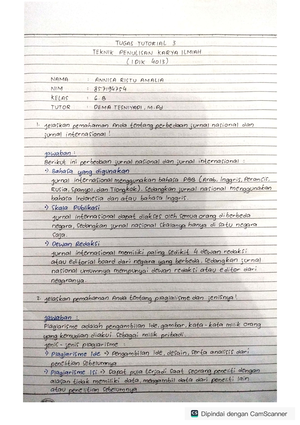 TUGAS TUTORIAL 3
TEKNIK PENULISAN KARYA ILMIAH
( IDIK 4013 )
NAMA : ANNISA RISTU AMALIA
NIM : 857194254
KELAS : 6 B
TUTOR : DEMA TESNIYADI, M.Pd
1. Jelaskan pemahaman Anda tentang perbedaan jurnal nasional dan
jurnal internasional !
Jawaban :
Berikut ini perbedaan jurnal nasional dan jurnal internasional :
→ Bahasa yang digunakan
jurnal internasional menggunakan bahasa PBB (Arab, Inggris, Perancis,
Rusia, Spanyol, dan Tiongkok). Sedangkan jurnal nasional menggunakan
bahasa Indonesia dan atau bahasa Inggris.
→ Skala Publikasi
jurnal internasional dapat diakses oleh semua orang di berbeda
negara, sedangkan jurnal nasional skalanya hanya di satu negara
saja.
→ Dewan Redaksi
jurnal internasional memiliki paling sedikit 4 dewan redaksi
atau editorial board dari negara yang berbeda, sedangkan jurnal
nasional umumnya mempunyai dewan redaksi atau editor dari
negaranya.
2. Jelaskan pemahaman Anda tentang plagiarisme dan jenisnya !
Jawaban :
Plagiarisme adalah pengambilan ide, gambar, kata-kata milik orang
yang kemudian diakui sebagai milik pribadi.
Jenis-jenis plagiarisme :
→ Plagiarisme Ide → Pengambilan ide, desain, serta analisis dari
penelitian sebelumnya
→ Plagiarisme Isi → Dapat pula terjadi saat seorang peneliti dengan
alasan tidak memiliki data, mengambil data dari peneliti lain
atau penelitian sebelumnya.
Dipindai dengan CamScanner